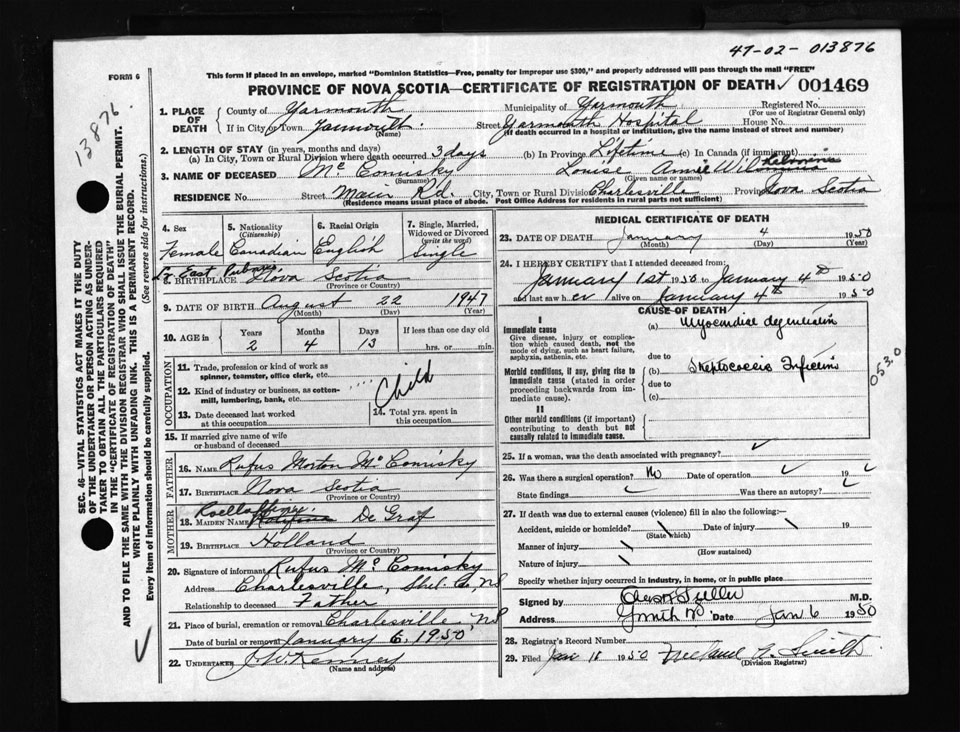 47-02-013876
FORM 6
This form if placed in an envelope, marked "Dominion Statistics—Free, penalty for improper use $300," and properly addressed will pass through the mail "FREE"
PROVINCE OF NOVA SCOTIA—CERTIFICATE OF REGISTRATION OF DEATH ✓ 001469
13876.
SEC. 46—VITAL STATISTICS ACT MAKES IT THE DUTY
OF THE UNDERTAKER OR PERSON ACTING AS UNDER-
TAKER TO OBTAIN ALL THE PARTICULARS REQUIRED
IN THE "CERTIFICATE OF REGISTRATION OF DEATH"
AND TO FILE THE SAME WITH THE DIVISION REGISTRAR WHO SHALL ISSUE THE BURIAL PERMIT.
WRITE PLAINLY WITH UNFADING INK. THIS IS A PERMANENT RECORD.
Every item of information should be carefully supplied. (See reverse side for instructions.)
1. PLACE OF DEATH
County of Yarmouth Municipality of Yarmouth Registered No.
(For use of Registrar General only)
If in City or Town Yarmouth. Street Yarmouth Hospital House No.
(Name) (If death occurred in a hospital or institution, give the name instead of street and number)
2. LENGTH OF STAY (in years, months and days)
(a) In City, Town or Rural Division where death occurred 3 days (b) In Province Lifetime (c) In Canada (if immigrant)
3. NAME OF DECEASED Mc Comisky Louise Annie
(Surname) (Given name or names)
RESIDENCE No. Street Main Rd. City, Town or Rural Division Charlesville Province Nova Scotia
(Residence means usual place of abode. Post Office Address for residents in rural parts not sufficient)
4. Sex
Female
5. Nationality
(Citizenship)
Canadian
6. Racial Origin
English
7. Single, Married,
Widowed or Divorced
(write the word)
Single
East Pubnico
8. BIRTHPLACE Nova Scotia
(Province or Country)
9. DATE OF BIRTH August 22 1947
(Month) (Day) (Year)
10. AGE in Years Months Days If less than one day old
2 4 13 hrs. or min.
OCCUPATION
11. Trade, profession or kind of work as
spinner, teamster, office clerk, etc.
12. Kind of industry or business, as cotton-
mill, lumbering, bank, etc.
Child
13. Date deceased last worked
at this occupation
14. Total yrs. spent in
this occupation
15. If married give name of wife
or husband of deceased
FATHER
16. NAME Rufus Morton Mc Comisky
17. BIRTHPLACE Nova Scotia
(Province or Country)
MOTHER
18. MAIDEN NAME De Graf
19. BIRTHPLACE Holland
(Province or Country)
20. Signature of informant Rufus Mc Comisky
Address Charlesville, Shel. Co, NS
Relationship to deceased Father
21. Place of burial, cremation or removal Charlesville, NS
Date of burial or removal January 6, 1950
22. UNDERTAKER Kenney
(Name and address)
MEDICAL CERTIFICATE OF DEATH
23. DATE OF DEATH January 4 1950
(Month) (Day) (Year)
24. I HEREBY CERTIFY that I attended deceased from:
January 1st 1950 to January 4th 1950
and last saw her alive on January 4th 1950
CAUSE OF DEATH
I
Immediate cause
Give disease, injury or complica-
tion which caused death, not the
mode of dying, such as heart failure,
asphyxia, asthenia, etc.
(a) Myocardial degeneration
due to
Morbid conditions, if any, giving rise to
immediate cause (stated in order
proceeding backwards from im-
mediate cause).
(b) Streptococcic Infection
due to
(c)
053.0
II
Other morbid conditions (if important)
contributing to death but not
causally related to immediate cause.
25. If a woman, was the death associated with pregnancy? ✓
26. Was there a surgical operation? No Date of operation ✓ 19 ✓
State findings ✓ Was there an autopsy? ✓
27. If death was due to external causes (violence) fill in also the following:—
Accident, suicide or homicide? \ Date of injury \ 19
(State which)
Manner of injury \
(How sustained)
Nature of injury \
Specify whether injury occurred in industry, in home, or in public place
Signed by M.D.
Address Date Jan 6 1950
28. Registrar's Record Number
29. Filed Jan 18 1950 Smith
(Division Registrar)